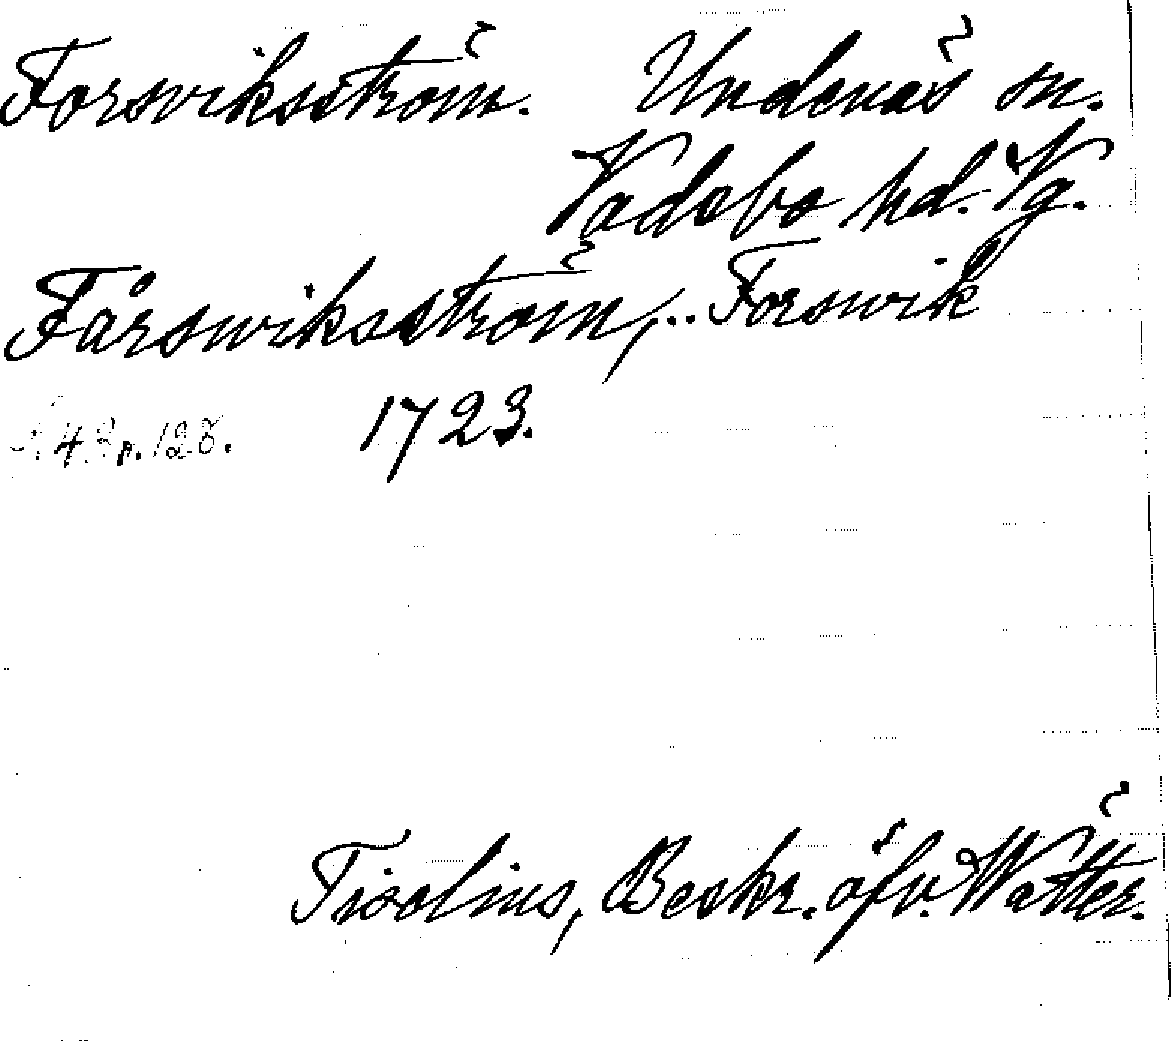 Forsviksström. Undenäs sn.
Vadsbo hd. Vg.
Fårswiksström, .. Forswik
1723.
p. 128.
Tiselius, Beskr. öfv. Wätter.